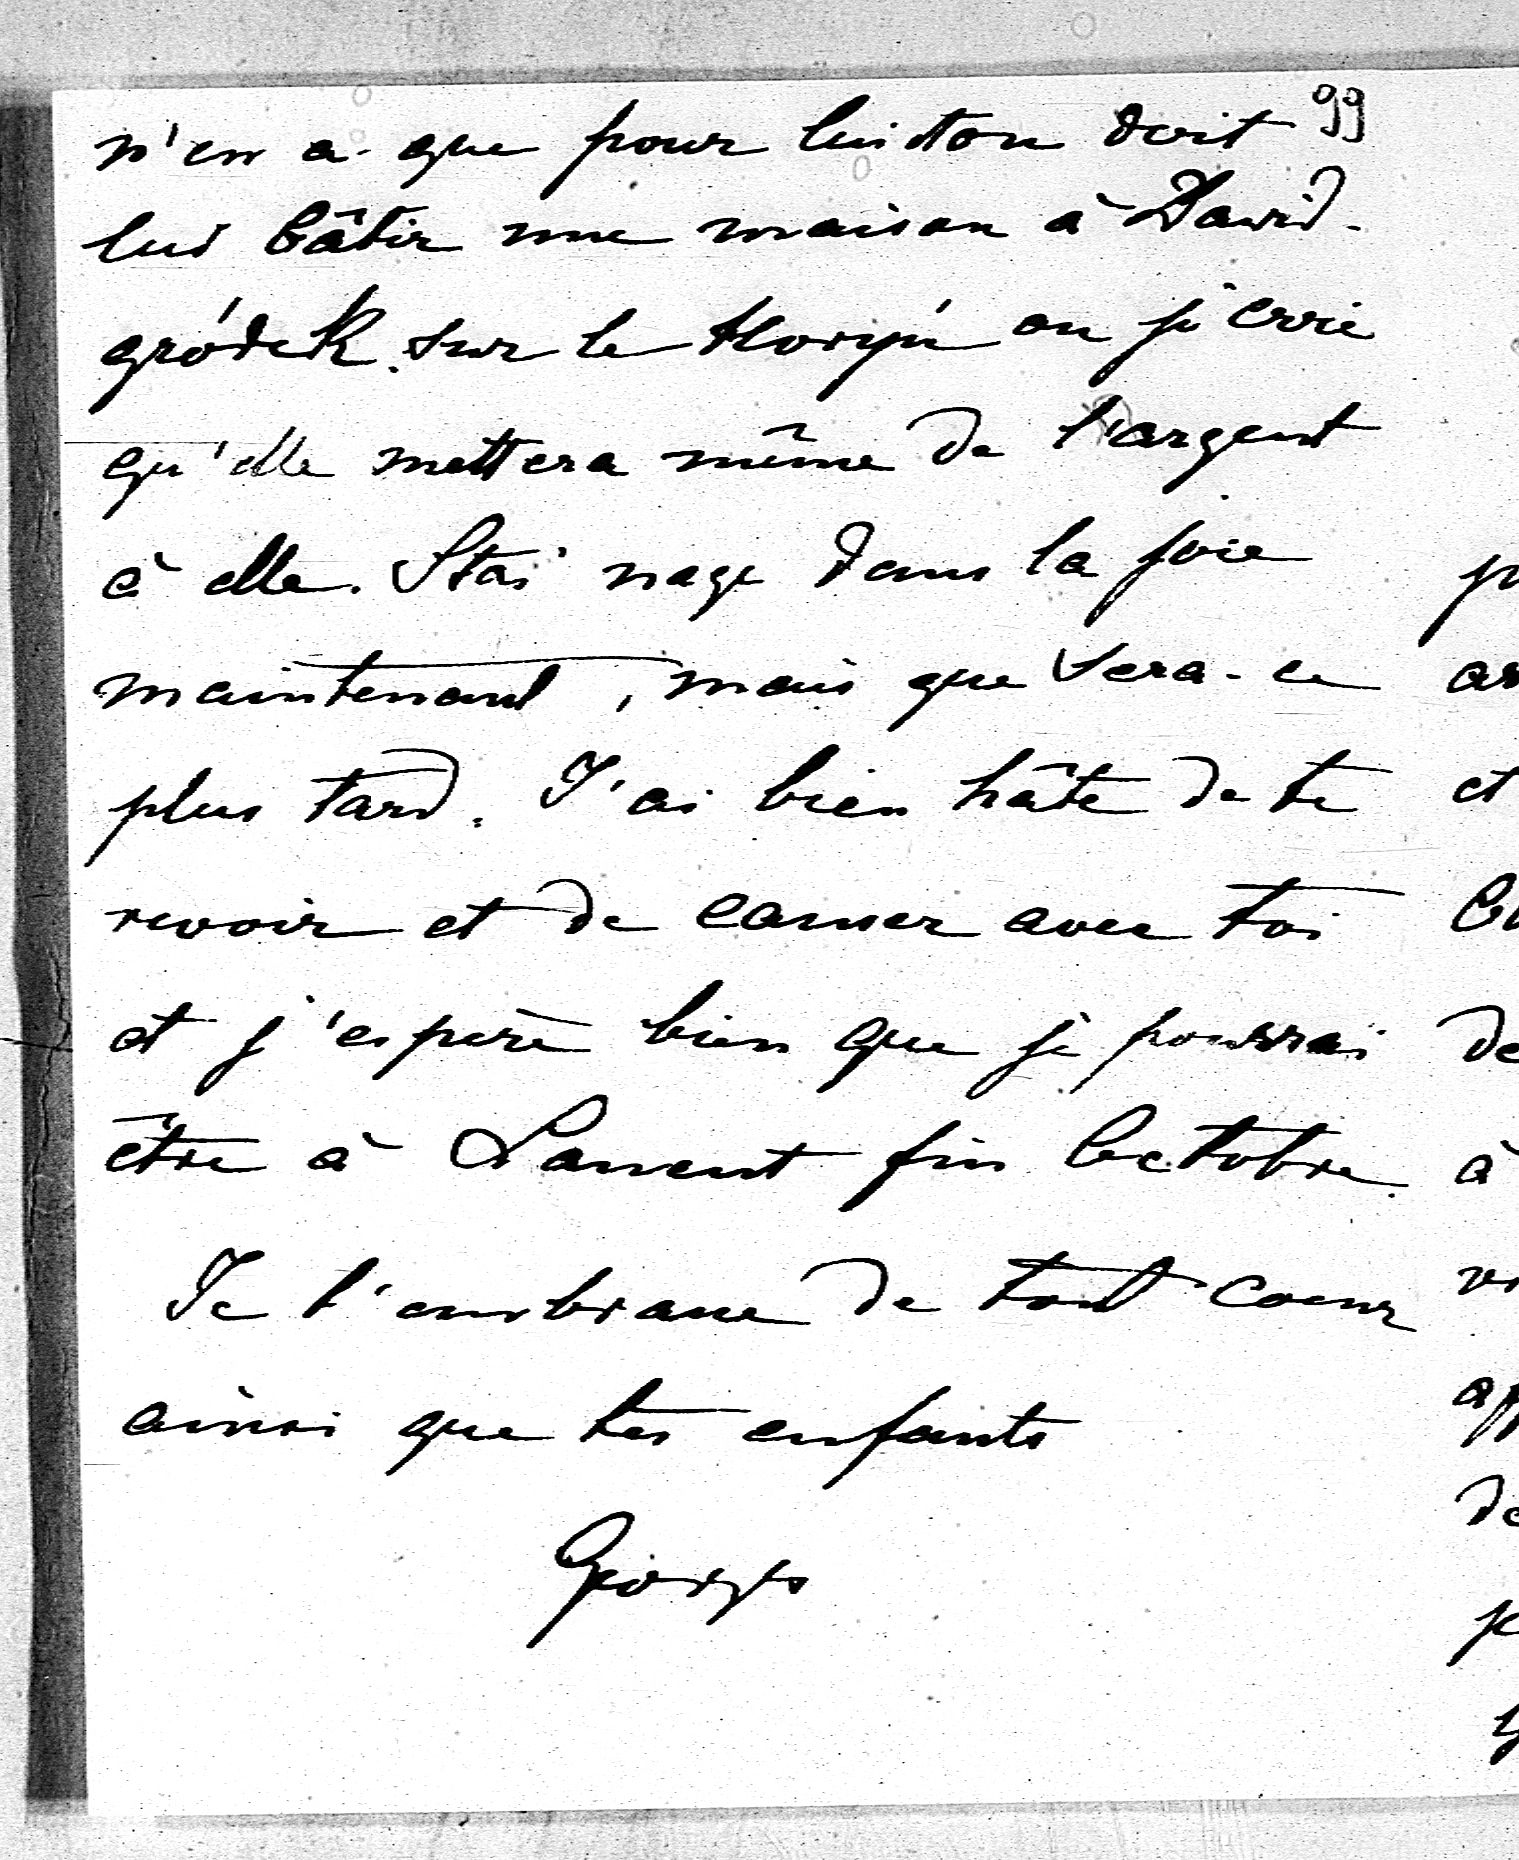 99
n'en a que pour lui et on doit
lui bâtir une maison à Dawid-
gródek sur le Horyń ou je crois
qu'elle mettera même de l'argent
à elle. Stas nage dans la joie
maintenant, mais que sera-ce
plus tard. J'ai bien hâte de te
revoir et de causer avec toi
et j'espère bien que je pourrai
être à Lancut fin Octobre.
Je t'embrasse de tout coeur
ainsi que tes enfants
Georges